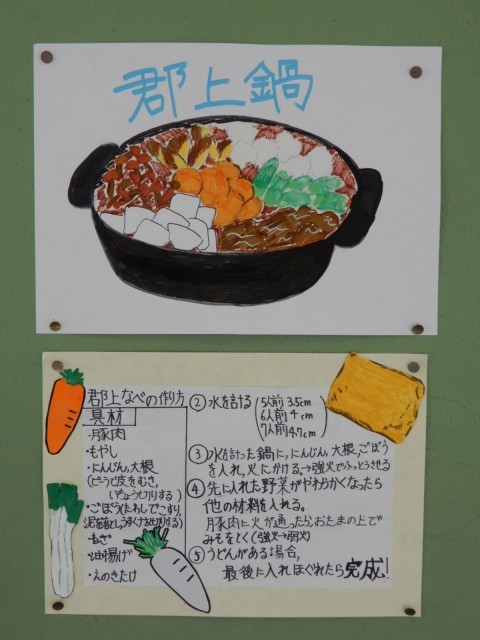 郡上鍋
郡上なべの作り方
具材
・豚肉
・もやし
・にんじん、大根
(ピーラで皮をむき、
いちょう切りする)
・ごぼう(たわしでこすり、
泥を落とし、うすくななめ切りする)
・ねぎ
・油揚げ
・えのきたけ
② 水を計る
5人前 3.5cm
6人前 4cm
7人前 4.7cm
③ 水を計った鍋に、にんじん、大根、ごぼう
を入れ、火にかける。→強火でふっとうさせる
④ 先に入れた野菜がやわらかくなったら
他の材料を入れる。
豚肉に火が通ったらおたまの上で
みそをとく(強火→弱火)
⑤ うどんがある場合、
最後に入れほぐれたら完成!